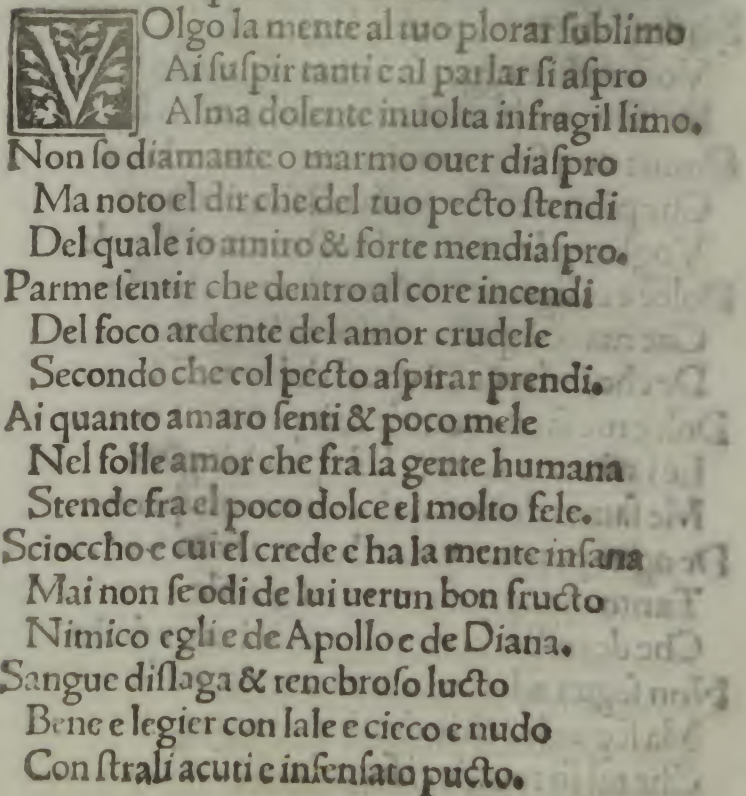 VOlgo la mente al tuo plorar ſublimo
Ai ſuſpir tanti e al parlar ſi aſpro
Alma dolente inuolta infragil limo.
Non ſo diamante o marmo ouer diaſpro
Ma noto el dir che del tuo pecto ſtendi
Del quale io amiro & forte mendiaſpro.
Parme ſentir che dentro al core incendi
Del foco ardente del amor crudele
Secondo che col pecto aſpirar prendi.
Ai quanto amaro ſenti & poco mele
Nel folle amor che fra la gente humana
Stende fra el poco dolce el molto fele.
Scioccho e cui el crede e ha la mente inſana
Mai non ſe odi de lui uerun bon fructo
Nimico egli e de Apollo e de Diana.
Sangue diſlaga & tenebroſo lucto
Bene e legier con lale e cieco e nudo
Con ſtrali acuti e inſenſato pucto.